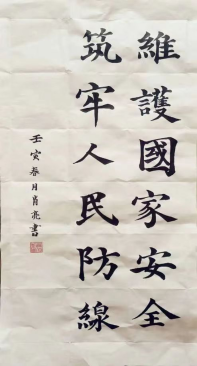 維護國家安全
筑牢人民防線
壬寅春月肖亮書